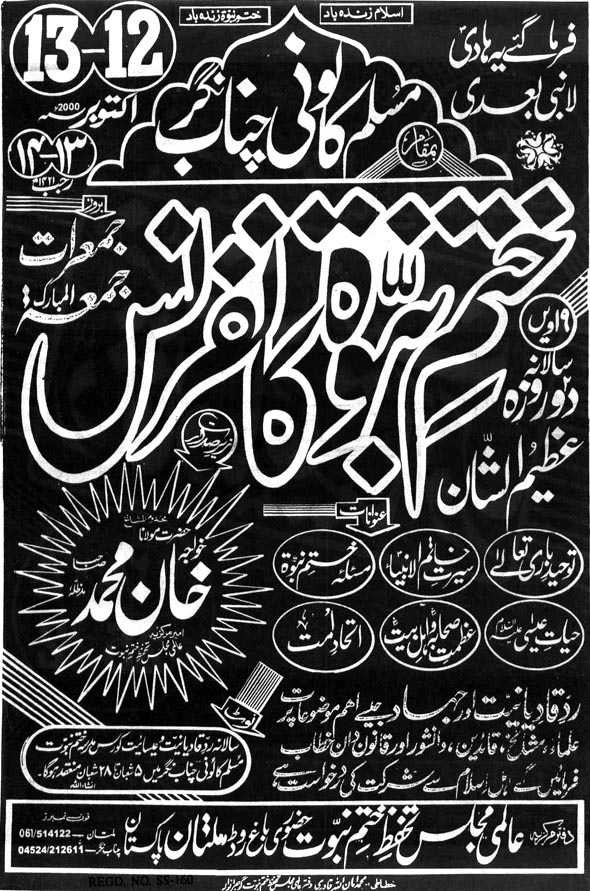 اسلام زندہ باد
ختم نبوۃ زندہ باد
فرما گئے یہ ہادی
لانبی بعدی
12-13
اکتوبر 2000ء
۱۳-۱۴
رجب ۱۴۲۱ھ
بمقام
مسلم کالونی چناب نگر
بروز
جمعرات
جمعۃ المبارک
ختم نبوۃ کانفرنس
۱۹ویں
سالانہ
دوروزہ
عظیم الشان
زیر صدارت
مخدوم المشائخ
حضرت مولانا
خواجہ خان محمد صاحب مدظلہ
امیر مرکزیہ
عالمی مجلس تحفظ ختم نبوت
عنوانات
توحید باری تعالٰے
سیرت خاتم الانبیاء
مسئلہ ختم نبوۃ
حیات عیسیٰ علیہ السلام
عظمت صحابہؓ و اہل بیتؓ
اتحاد امت
رد قادیانیت اور جہاد جیسے اہم موضوعات پر
علماء، مشائخ، قائدین، دانشور اور قانون دان خطاب
فرمائیں گے اہل اسلام سے شرکت کی درخواست ہے
نوٹ
سالانہ رد قادیانیت و عیسائیت کورس مدرسہ ختم نبوت
مسلم کالونی چناب نگر میں ۵ شعبان تا ۲۸ شعبان منعقد ہوگا۔
انشاء اللہ
دفتر مرکزیہ
عالمی مجلس تحفظ ختم نبوت حضوری باغ روڈ ملتان پاکستان
فون نمبرز
ملتان — 061/514122
چناب نگر — 04524/212611
REGD. NO. SS-160